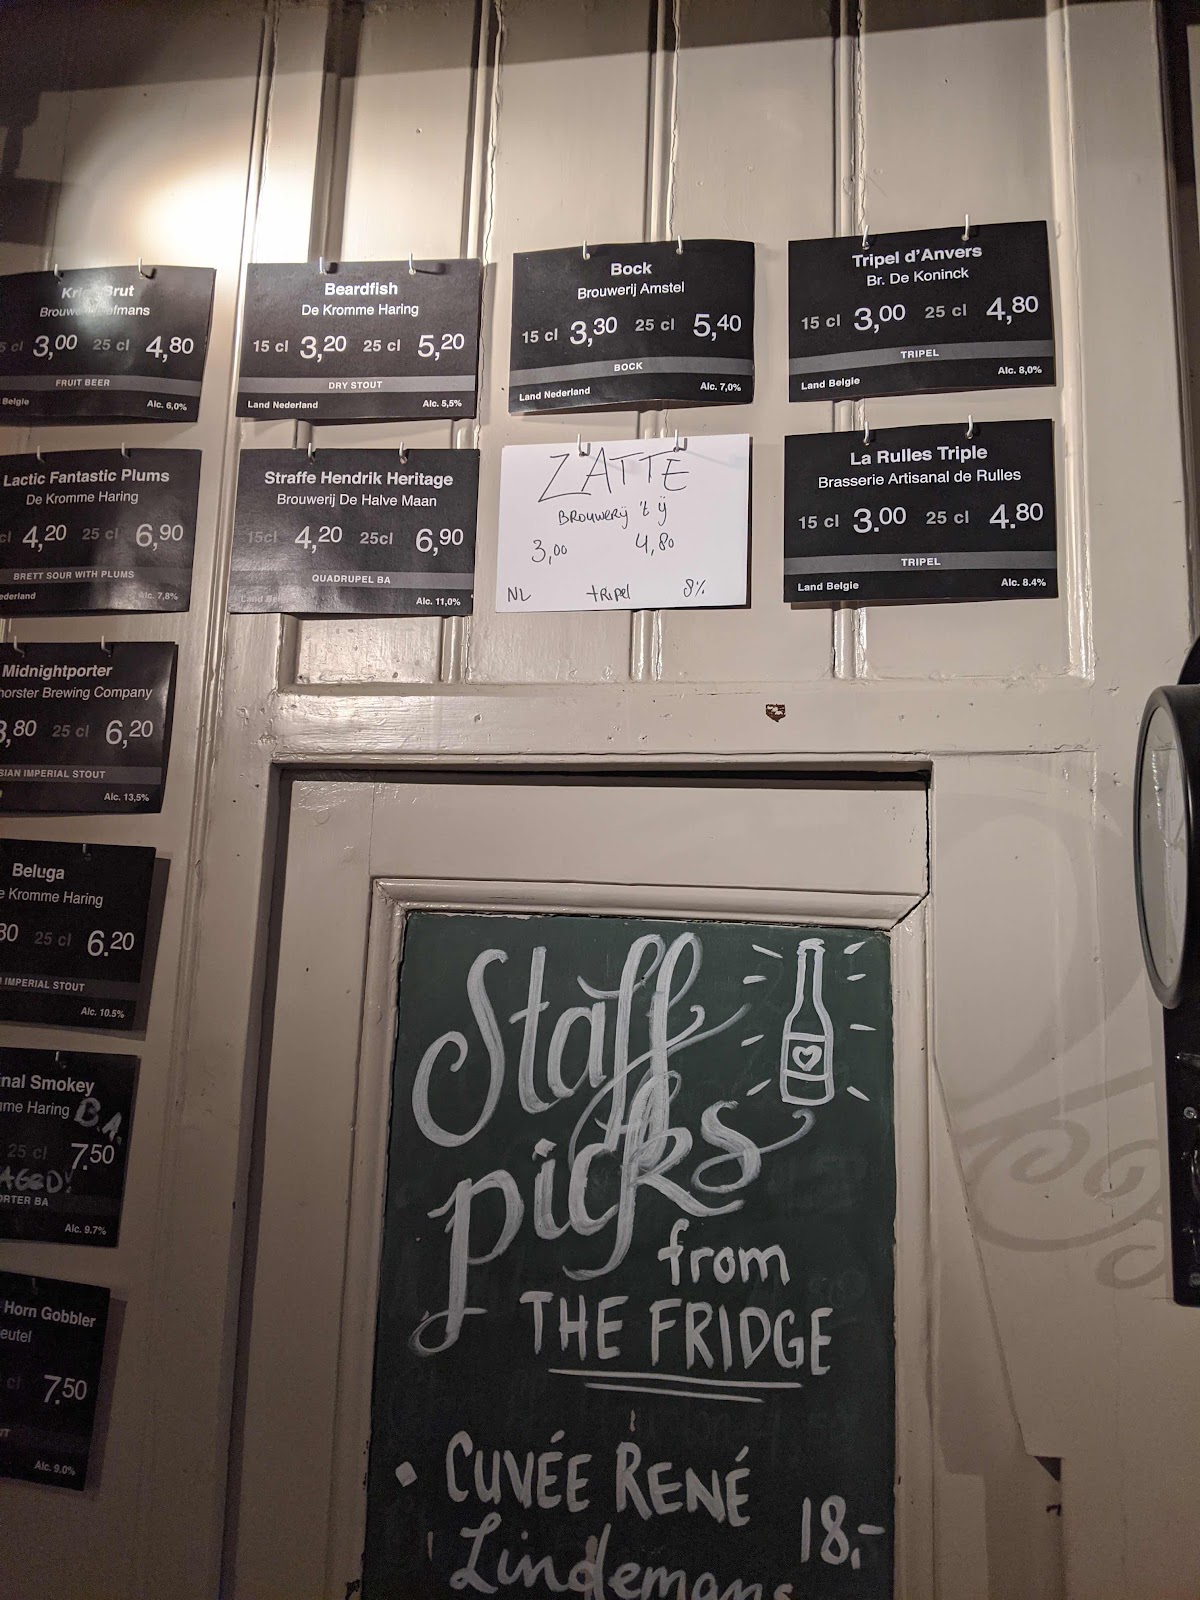 Brut
3,00 25 cl 4,80
FRUIT BEER
Belgie Alc. 6,0%
Beardfish
De Kromme Haring
15 cl 3,20 25 cl 5,20
DRY STOUT
Land Nederland Alc. 5,5%
Bock
Brouwerij Amstel
15 cl 3,30 25 cl 5,40
BOCK
Land Nederland Alc. 7,0%
Tripel d'Anvers
Br. De Koninck
15 cl 3,00 25 cl 4,80
TRIPEL
Land Belgie Alc. 8,0%
Lactic Fantastic Plums
De Kromme Haring
cl 4,20 25 cl 6,90
BRETT SOUR WITH PLUMS
ederland Alc. 7,8%
Straffe Hendrik Heritage
Brouwerij De Halve Maan
15cl 4,20 25cl 6,90
QUADRUPEL BA
Land Alc. 11,0%
ZATTE
BROUWERIJ 't IJ
3,00 4,80
NL tripel 8%
La Rulles Triple
Brasserie Artisanal de Rulles
15 cl 3.00 25 cl 4.80
TRIPEL
Land Belgie Alc. 8.4%
Midnightporter
horster Brewing Company
,80 25 cl 6,20
SIAN IMPERIAL STOUT
Alc. 13,5%
Beluga
e Kromme Haring
30 25 cl 6.20
IMPERIAL STOUT
Alc. 10.5%
nal Smokey
me Haring B.A.
25 cl 7.50
AGED!
RTER BA
Alc. 9.7%
Horn Gobbler
eutel
cl 7.50
Alc. 9.0%
Staff
picks
from
THE FRIDGE
• CUVÉE RENÉ
Lindemans 18,-